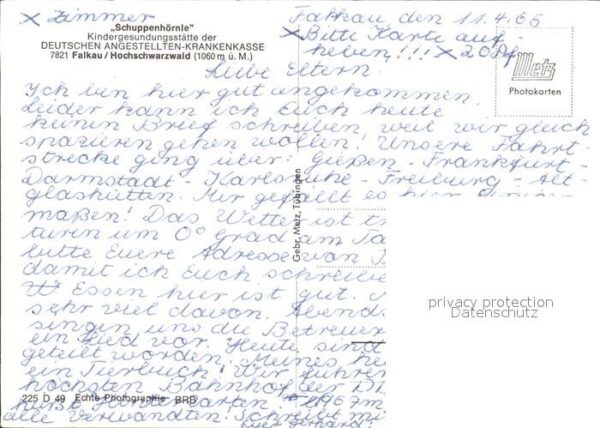 x Zimmer
„Schuppenhörnle"
Kindergesundungsstätte der
DEUTSCHEN ANGESTELLTEN-KRANKENKASSE
7821 Falkau / Hochschwarzwald (1060 m ü. M.)
Falkau den 11.4.65
x Bitte Karte auf-
heben!!! x 20 Pf
Metz
Photokarten
Liebe Eltern.
Ich bin hier gut angekommen.
Leider kann ich Euch heute
keinen Brief schreiben, weil wir gleich
spazieren gehen wollen! Unsere Fahrt-
strecke ging über: Gießen - Frankfurt-
Darmstadt - Karlsruhe - Freiburg - Alt-
glashütten. Mir gefällt es hier
maßen! Das Wetter ist t
turen um 0° grad am Ta
bitte Euere Adresse von
damit ich Euch schreibe
Essen hier ist gut.
sehr viel davon. Abend
singen uns die Betreuer
ein Lied vor. Heute sind
geteilt worden. Meines he
ein Tierbuch! Wir fuhren
höchsten Bahnhof der D
967 m
alle Verwandten! Schreibt mi
Euer Gerhard!
Gebr. Metz, Tübingen
225 D 49 Echte Photographie BRB
privacy protection
Datenschutz